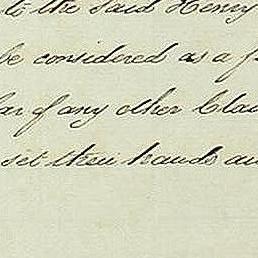 to the said Henry
be considered as a f
bar of any other Clai
set their hands an